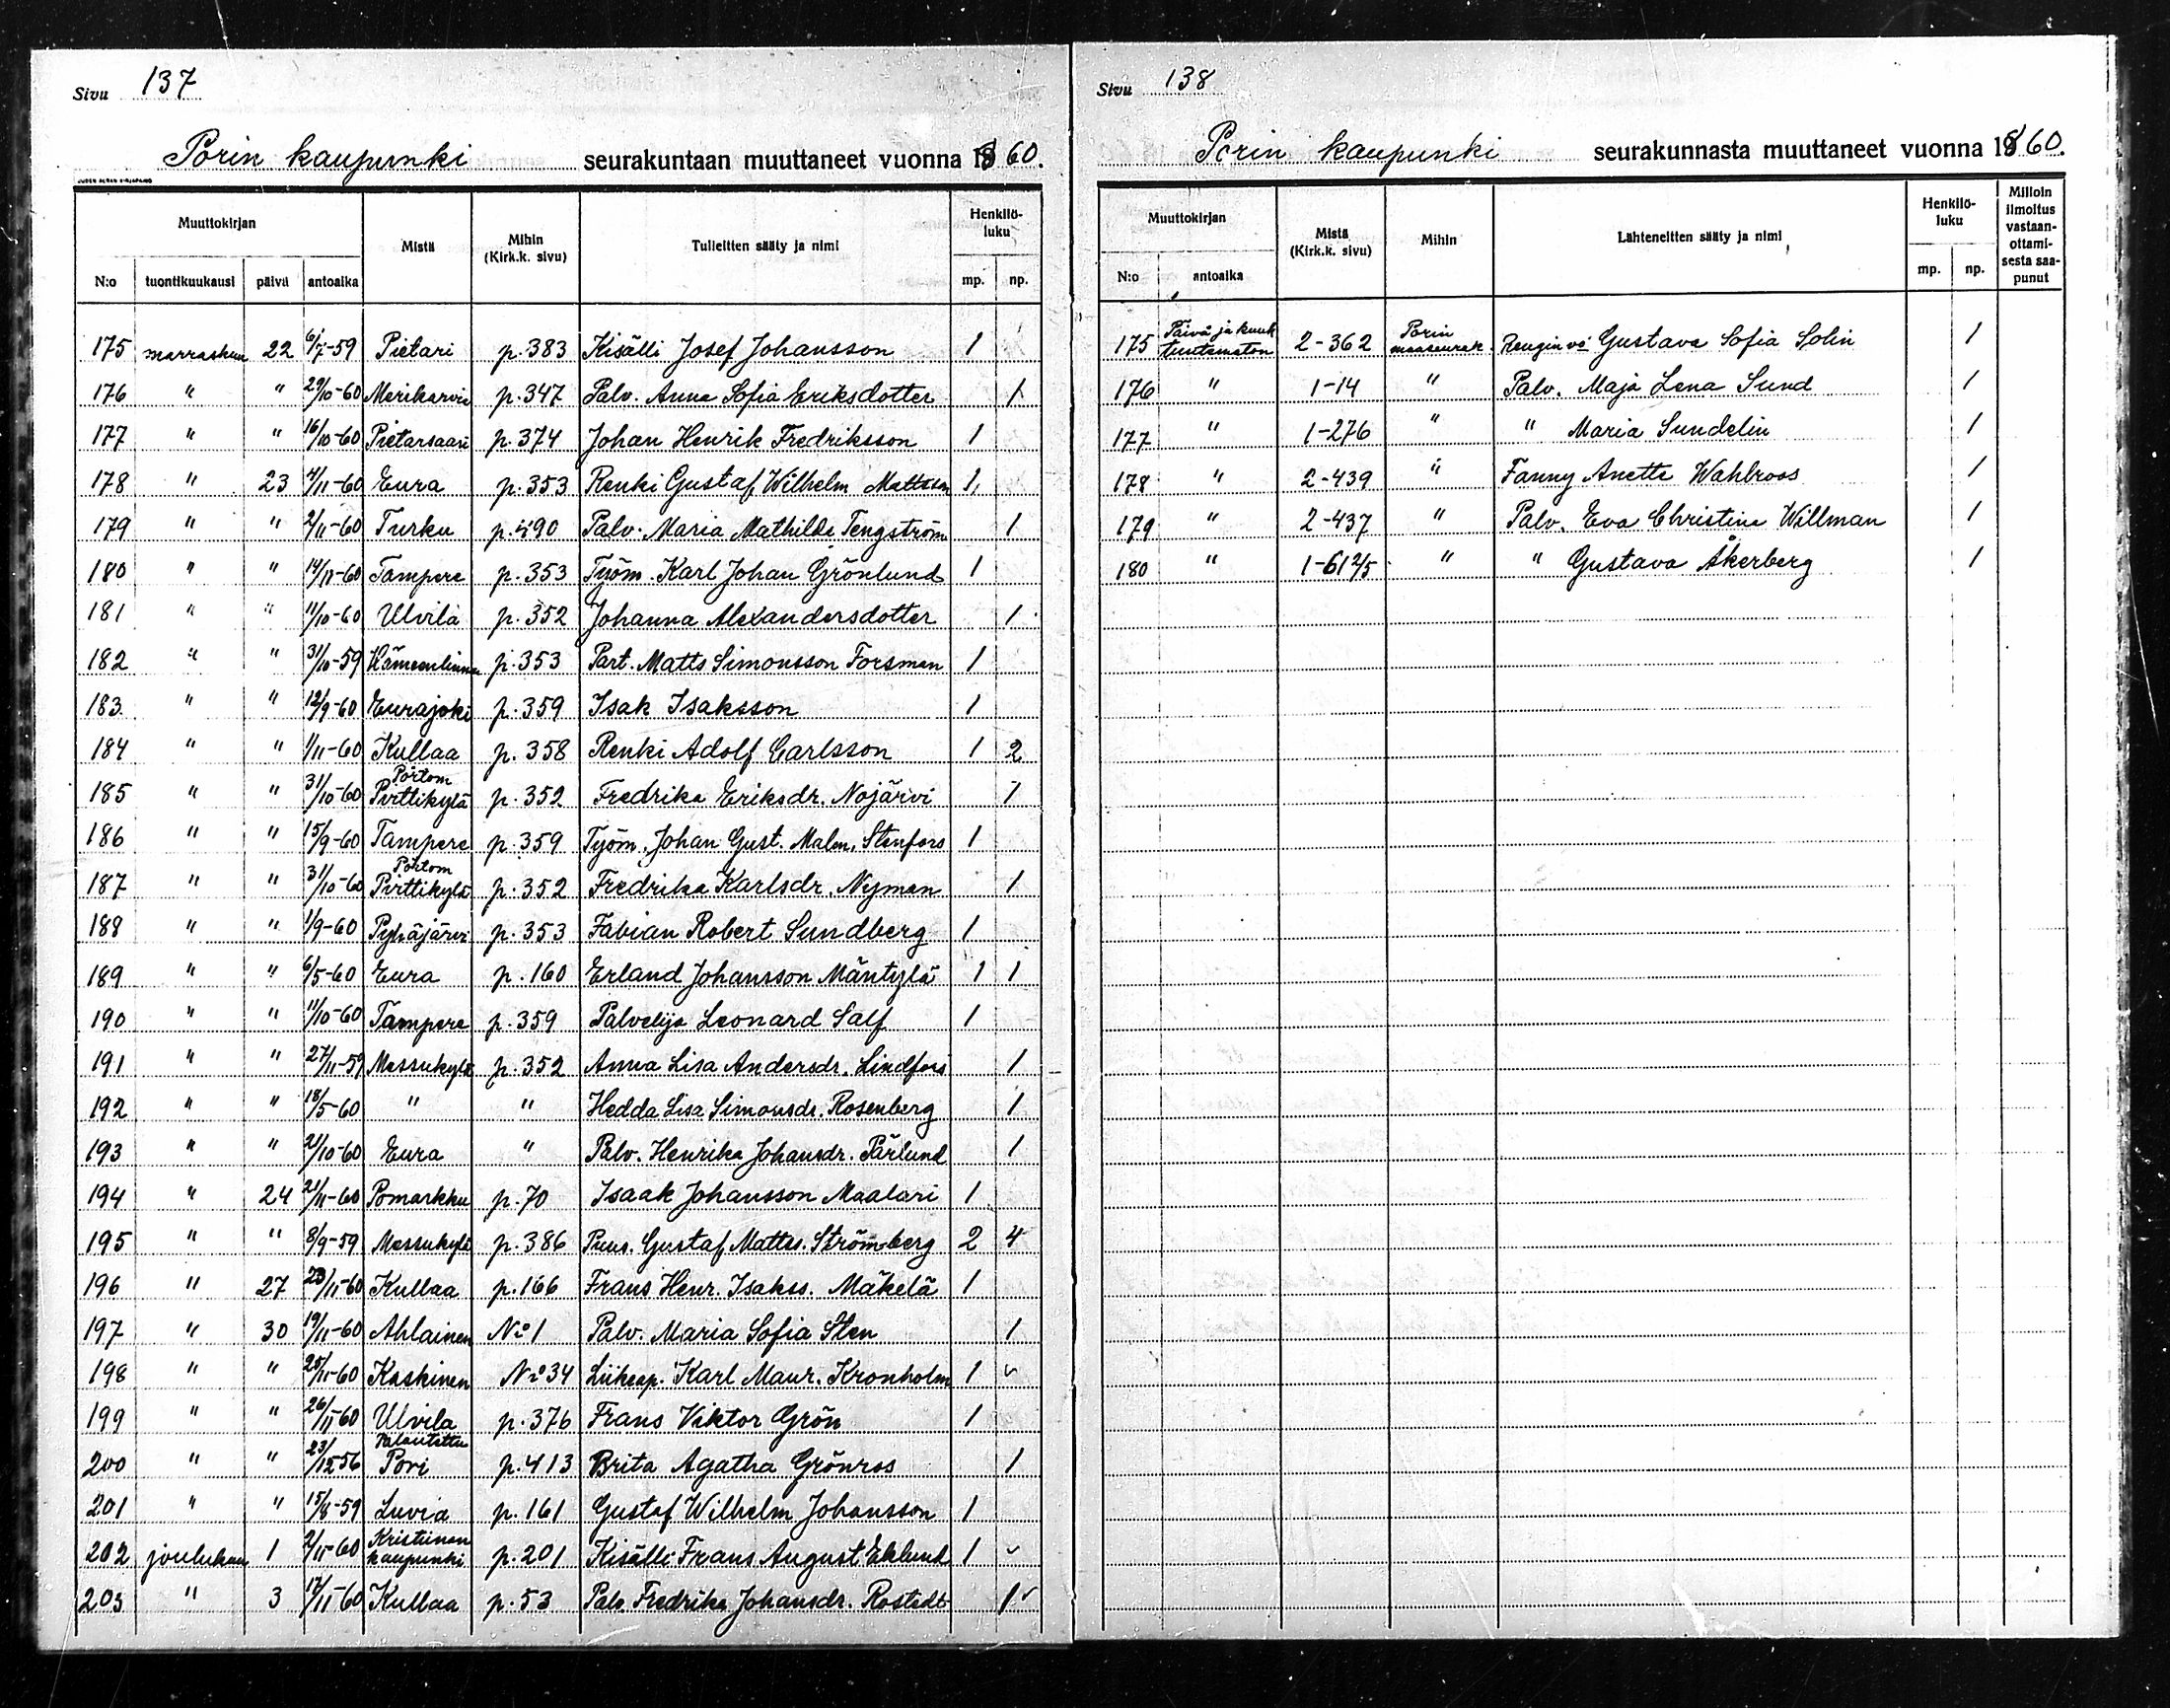 Sivu 137
Porin kaupunki seurakuntaan muuttaneet vuonna 1860.
Muuttokirjan Mistä Mihin (Kirk.k. sivu) Tulleitten sääty ja nimi Henkilö-luku
N:o tuontikuukausi päivä antoaika mp. np.
175 marraskuu 22 6/7-59 Pietari p.383 Kisälli Josef Johansson 1
176 " " 29/10-60 Merikarvia p.347 Palv. Anna Sofia Eriksdotter 1
177 " " 16/10-60 Pietarsaari p.374 Johan Henrik Fredriksson 1
178 " 23 4/11-60 Eura p.353 Renki Gustaf Wilhelm Mattsson 1
179 " " 2/11-60 Turku p.490 Palv. Maria Mathilda Tengström 1
180 " " 14/11-60 Tampere p.353 Työm. Karl Johan Grönlund 1
181 " " 11/10-60 Ulvila p.352 Johanna Alexandersdotter 1
182 " " 31/10-59 Hämeenlinna p.353 Part. Matts Simonsson Forsman 1
183 " " 12/9-60 Eurajoki p.359 Isak Isaksson 1
184 " " 1/11-60 Kullaa p.358 Renki Adolf Carlsson 1 2
185 " " 31/10-60 Pörtom Pirttikylä p.352 Fredrika Eriksdr. Nojärvi 1
186 " " 15/9-60 Tampere p.359 Työm. Johan Gust. Malm. Stenfors 1
187 " " 31/10-60 Pörtom Pirttikylä p.352 Fredrika Karlsdr. Nyman 1
188 " " 1/9-60 Pyhäjärvi p.353 Fabian Robert Sundberg 1
189 " " 6/5-60 Eura p.160 Erland Johansson Mäntylä 1 1
190 " " 11/10-60 Tampere p.359 Palvelija Leonard Salf 1
191 " " 27/11-59 Messukylä p.352 Anna Lisa Andersdr. Lindfors 1
192 " " 18/5-60 " " Hedda Lisa Simonsdr. Rosenberg 1
193 " " 21/10-60 Eura " Palv. Henrika Johansdr. Pärlund 1
194 " 24 21/11-60 Pomarkku p.70 Isaak Johansson Maalari 1
195 " " 8/9-59 Messukylä p.386 Puus. Gustaf Mattss. Strömberg 2 4
196 " 27 /11-60 Kullaa p.166 Frans Henr. Isakss. Mäkelä 1
197 " 30 19/11-60 Ahlainen No 1 Palv. Maria Sofia Sten 1
198 " " 25/11-60 Kaskinen No 34 Liikeap. Karl Maur. Kronholm 1 ✓
199 " " 26/11-60 Ulvila p.376 Frans Viktor Grön 1
200 " " 23/12 56 Palautettu Pori p.413 Brita Agatha Grönros 1
201 " " 15/8-59 Luvia p.161 Gustaf Wilhelm Johansson 1
202 joulukuu 1 2/11-60 Kristiinankaupunki p.201 Kisälli Frans August Eklund 1 ✓
203 " 3 17/11-60 Kullaa p.53 Palv. Fredrika Johansdr. Rostedt 1✓
Sivu 138
Porin kaupunki seurakunnasta muuttaneet vuonna 1860.
Muuttokirjan Mistä (Kirk.k. sivu) Mihin Lähteneitten sääty ja nimi Henkilö-luku Milloin ilmoitus vastaan-ottami-sesta saa-punut
N:o antoaika mp. np.
175 Päivä ja kuuk. tuntematon 2-362 Porin maaseurak. Rengin vo Gustava Sofia Solin 1
176 " 1-14 " Palv. Maja Lena Sund 1
177 " 1-276 " " Maria Sundelin 1
178 " 2-439 " Fanny Anette Wahlroos 1
179 " 2-437 " Palv. Eva Christina Willman 1
180 " 1-612/5 " " Gustava Åkerberg 1